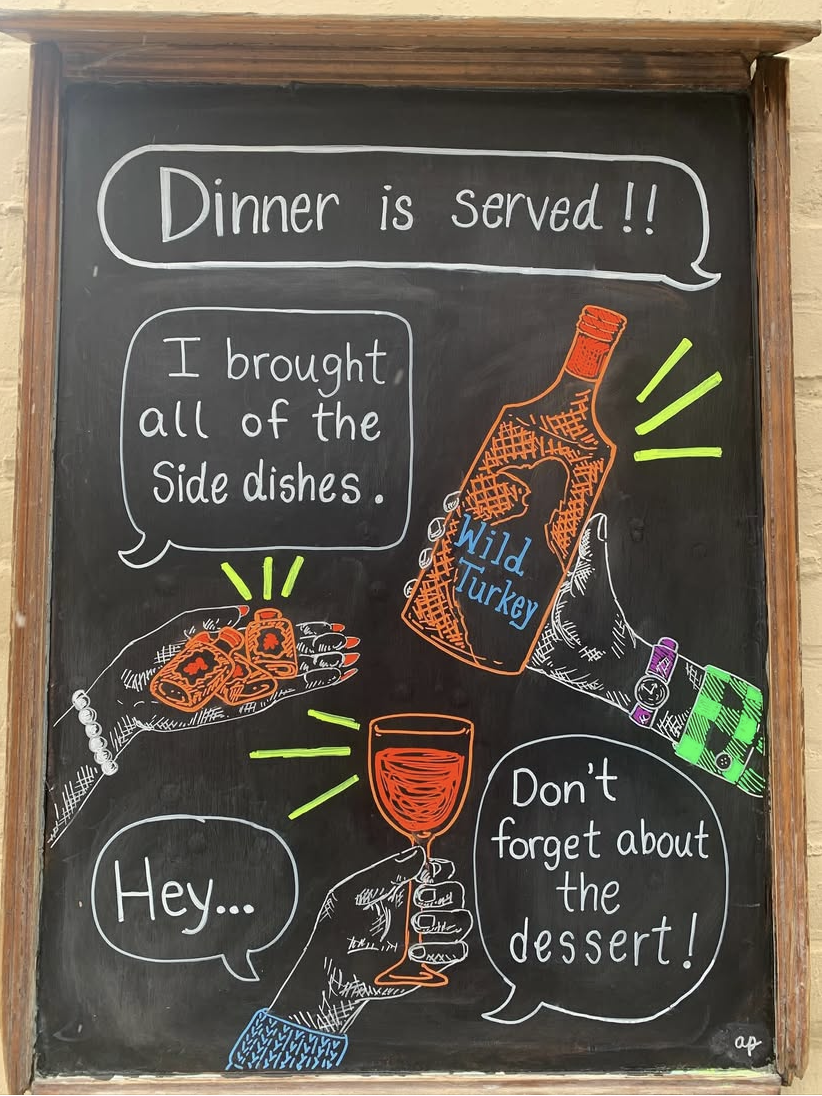 Dinner is served !!
I brought
all of the
Side dishes.
Wild
Turkey
Hey...
Don't
forget about
the
dessert!
ap